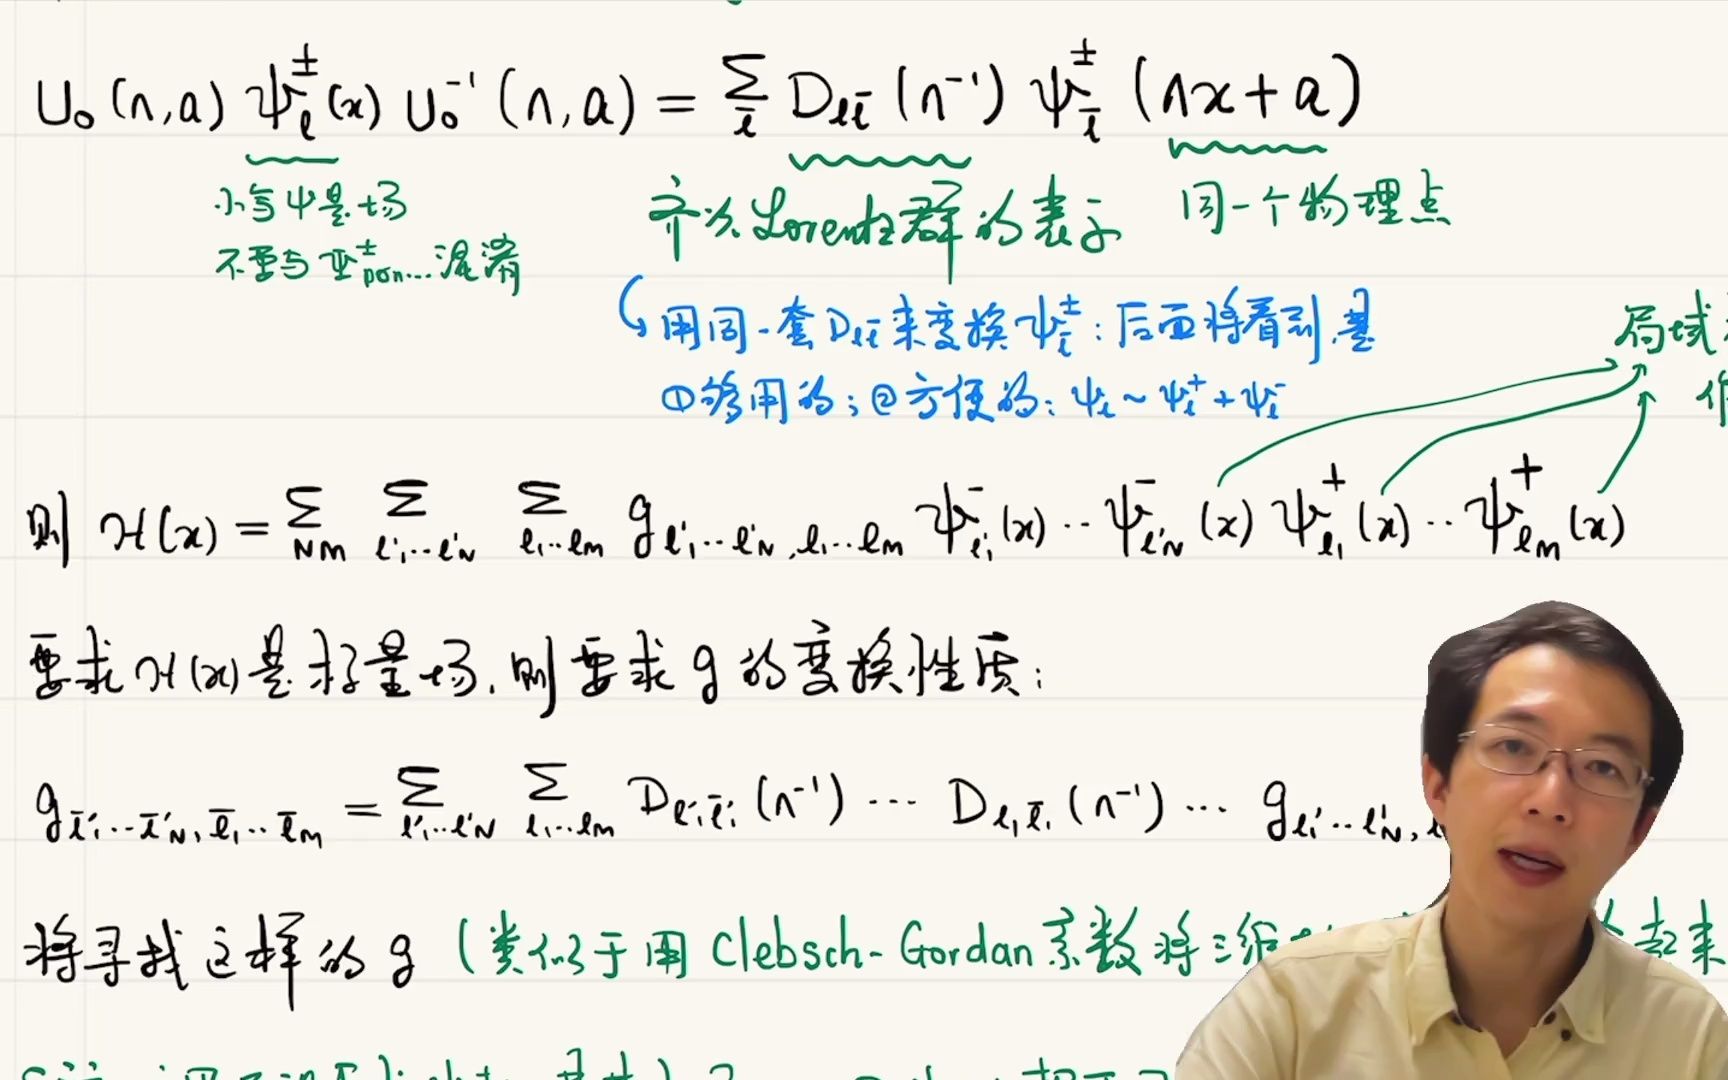 U₀(Λ,a) ψ_ℓ^±(x) U₀⁻¹(Λ,a) = Σ_ℓ̄ D_ℓℓ̄(Λ⁻¹) ψ_ℓ̄^±(Λx+a)
小写ψ是场
不要与Ψ^±_pσn...混淆
齐次Lorentz群的表示
同一个物理点
用同一套D_ℓℓ̄来变换ψ_ℓ̄^±：后面将看到是
①够用的；②方便的：ψ_ℓ~ψ_ℓ^++ψ_ℓ^-
局域
则 ℋ(x) = Σ_NM Σ_ℓ'₁…ℓ'_N Σ_ℓ₁…ℓ_M g_ℓ'₁…ℓ'_N,ℓ₁…ℓ_M ψ^-_ℓ'₁(x)…ψ^-_ℓ'_N(x) ψ^+_ℓ₁(x)…ψ^+_ℓ_M(x)
要求ℋ(x)是标量场，则要求g的变换性质：
g_ℓ̄'₁…ℓ̄'_N,ℓ̄₁…ℓ̄_M = Σ_ℓ'₁…ℓ'_N Σ_ℓ₁…ℓ_M D_ℓ'₁ℓ̄'₁(Λ⁻¹) … D_ℓ₁ℓ̄₁(Λ⁻¹) … g_ℓ'₁…ℓ'_N,
将寻找这样的g（类似于用Clebsch-Gordan系数将三维 起来